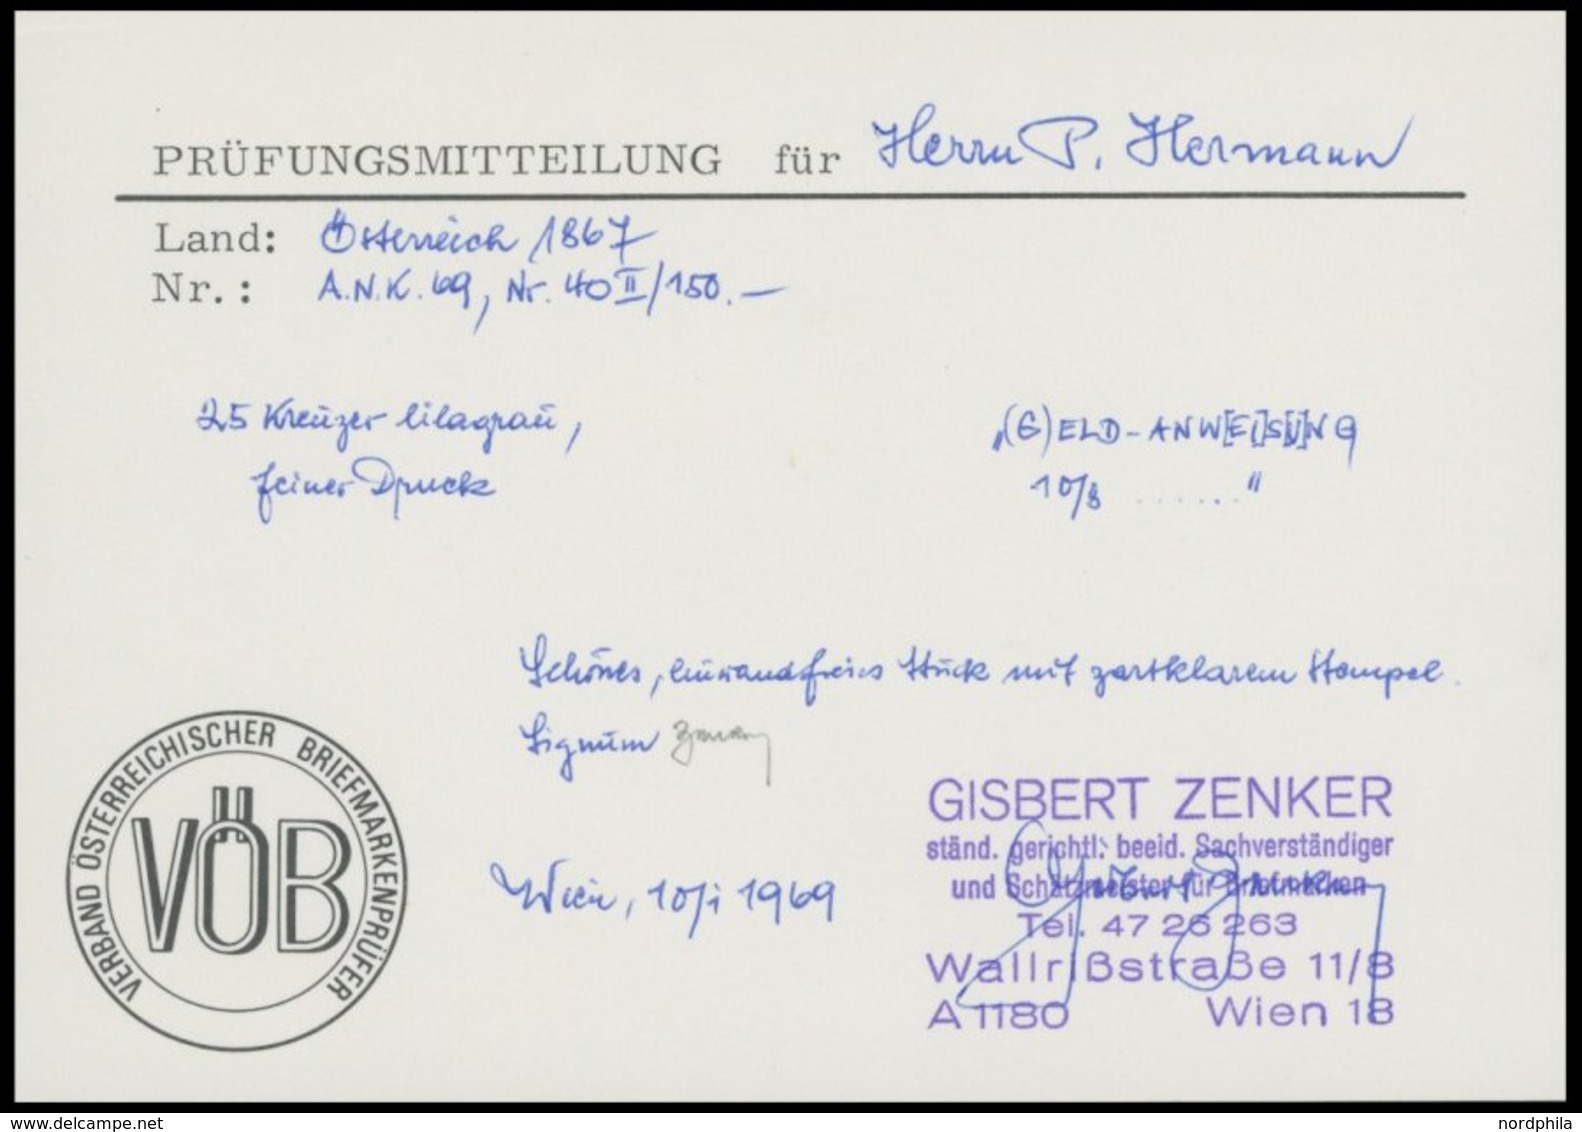 PRÜFUNGSMITTEILUNG für Herrn P. Hermann
Land: Österreich 1867
Nr.: A.N.K. 69, Nr. 40 II/150.—
25 Kreuzer lilagrau,
feiner Druck
„(G)ELD-ANW[EI]S[U]NG
10/8 ......"
Schönes, einwandfreies Stück mit zartklarem Stempel.
Signum Zenker
VERBAND ÖSTERREICHISCHER BRIEFMARKENPRÜFER
VÖB
Wien, 10/i 1969
GISBERT ZENKER
ständ. gerichtl. beeid. Sachverständiger
und Schätzmeister für Briefmarken
Tel. 47 26 263
Wallrißstraße 11/8
A 1180 Wien 18
www.delcampe.net
nordphila